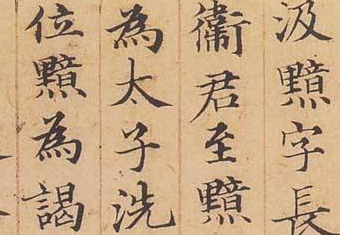 汲黯字長
衛君至黯
為太子洗
位黯為謁